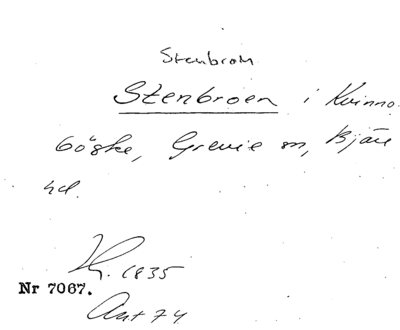 Stenbron
Stenbroen i Kvinna
böske, Grevie sn, Bjäre
hd.
1835
Nr 7067.
Ant 74